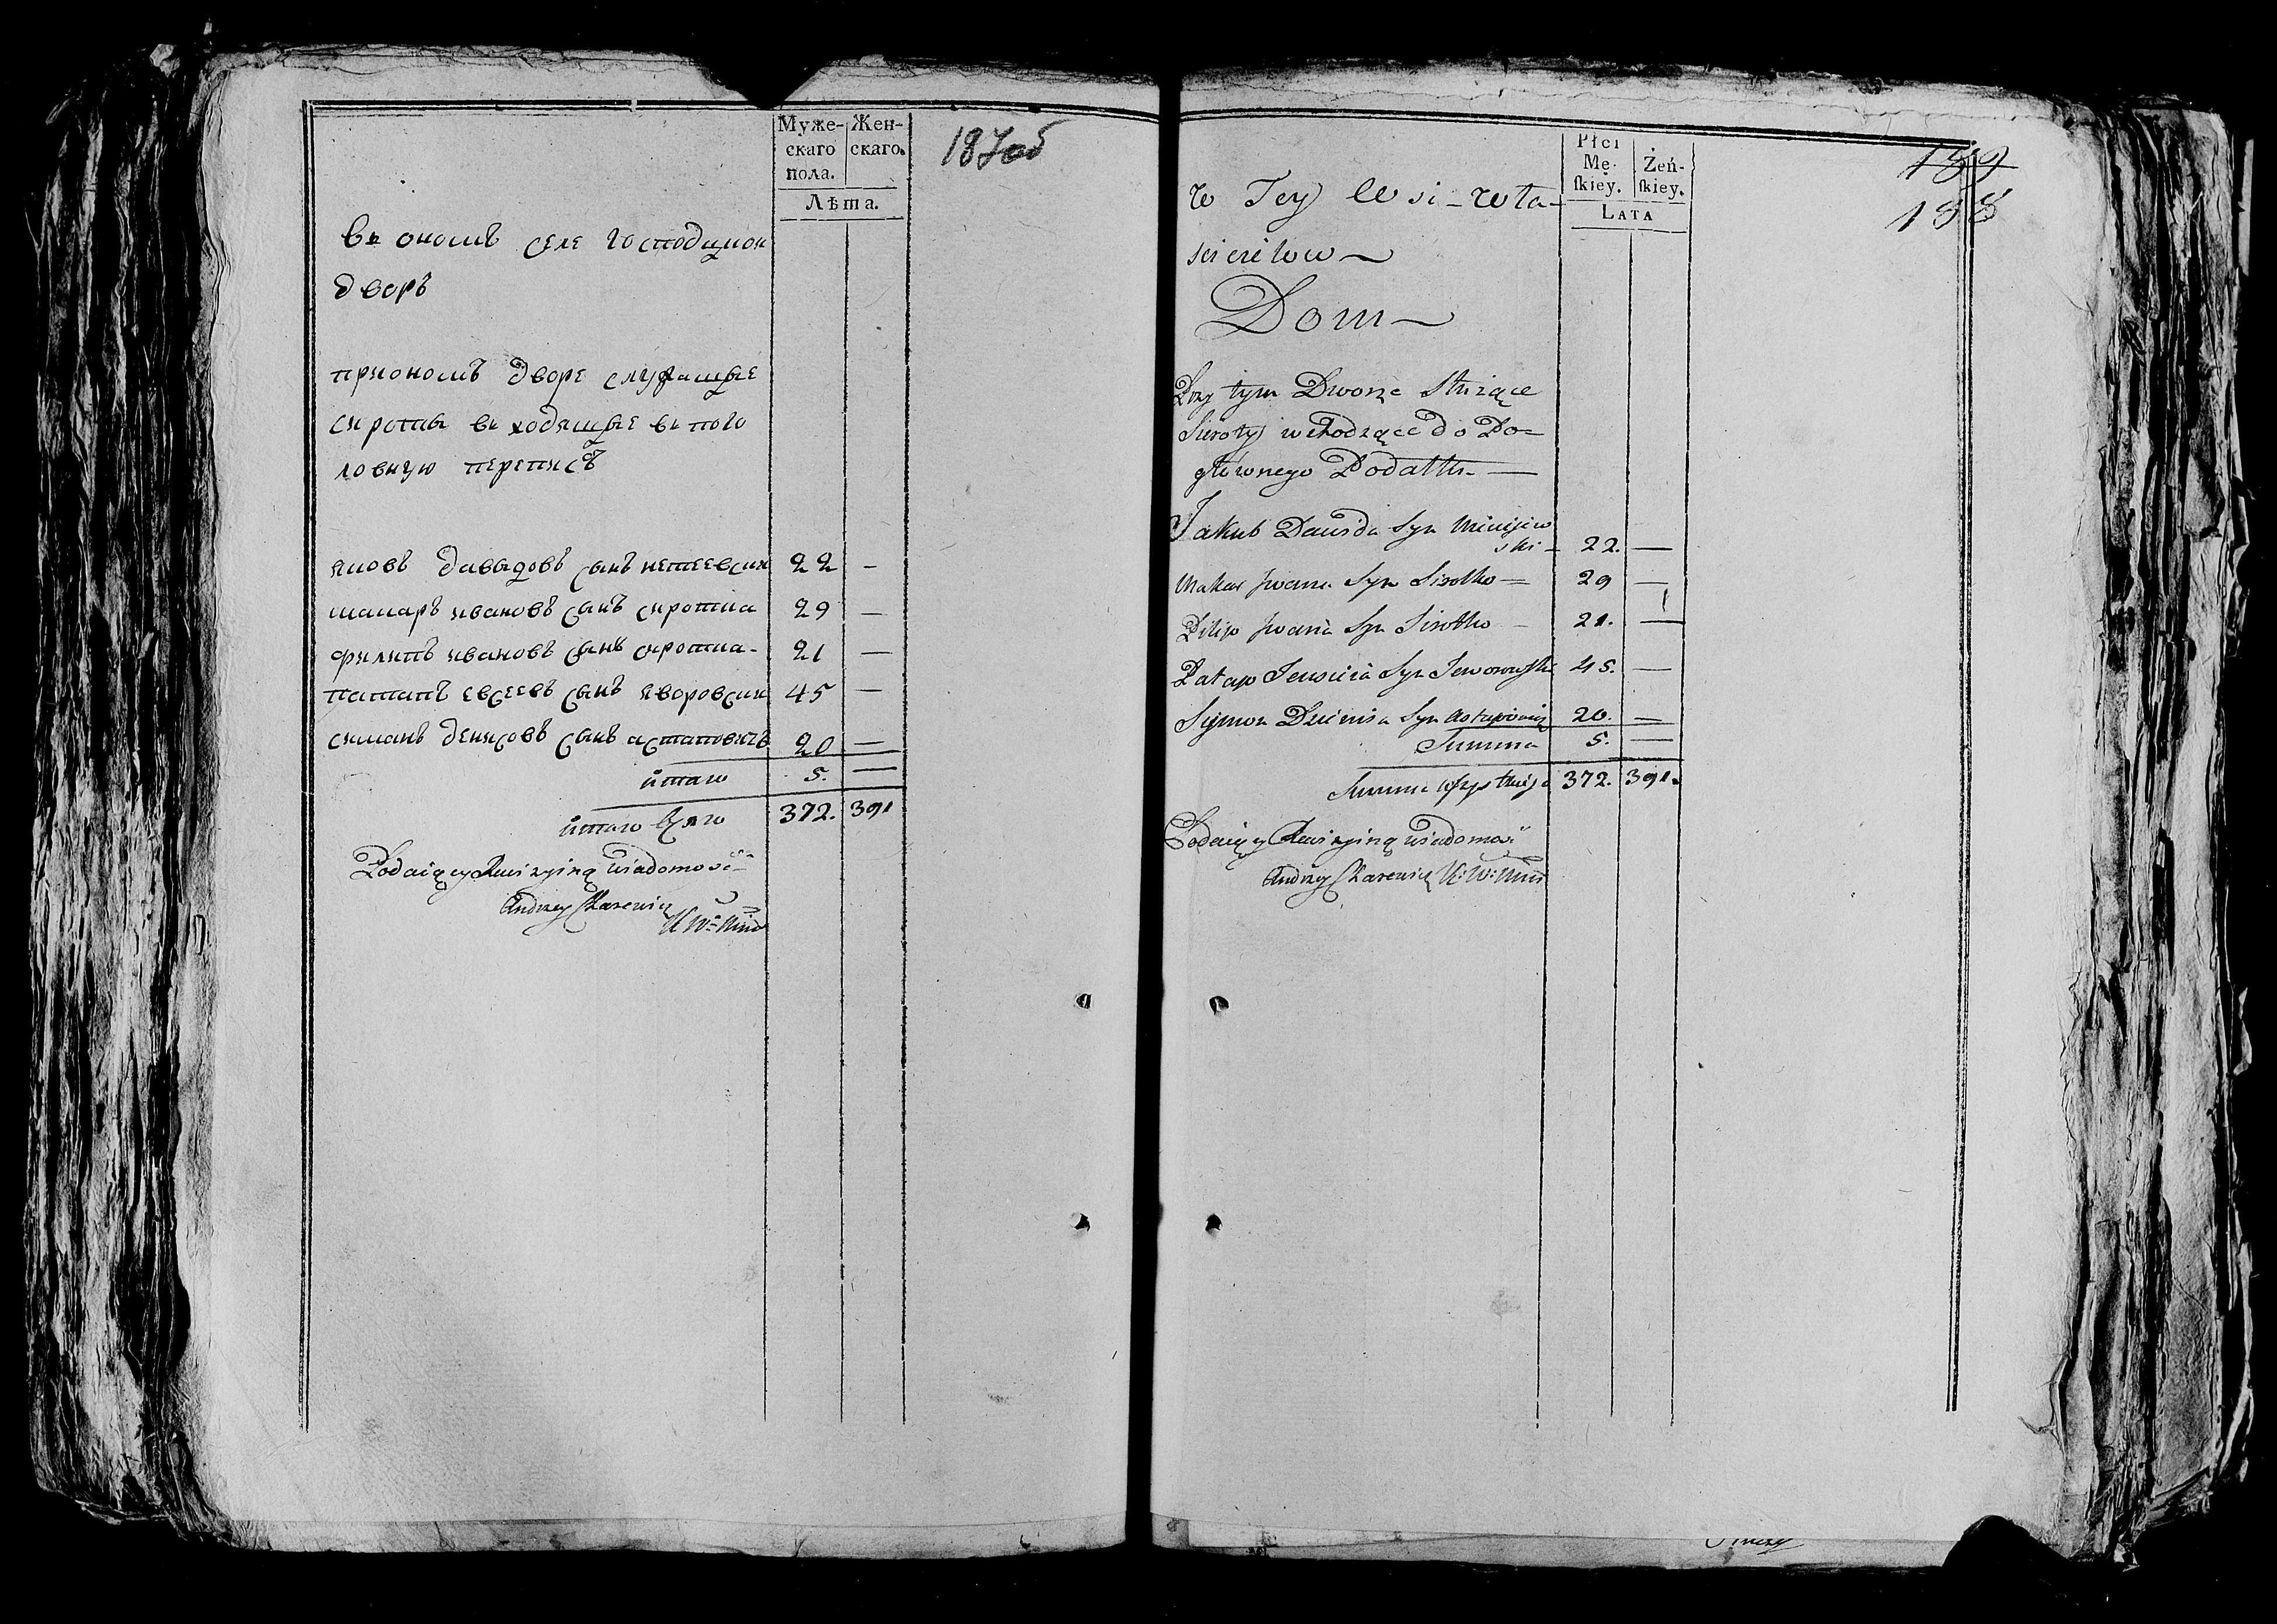 Муже-
скаго
пола.
Жен-
скаго.
Лѣта.
187об
въ ономъ селе господцкои
дворъ
приономъ дворе служащые
сироты въ ходящые въ пого
ловную переписъ
яковъ давыдовъ сынъ нетеевски 22 —
макаръ ивановъ сынъ сиротка 29 —
филипъ ивановъ сынъ сиротка - 21 —
патапъ евсеевъ сынъ яворовски 45 —
симанъ денисовъ сынъ астаповичъ 20 —
итаго 5. —
итаго всяго 372. 391
Podaiący Rewizyiną wiadomość
Andrzey
Płci
Mę-
skiey.
Żeń-
skiey.
LATA
189
188
w Tey Wsi - wła-
scicielow
Dom
Przy tym Dworze Służące
Sieroty wchodzące do Po-
głównego Podatku —
Jakub Dawida Syn
ski - 22. —
Makar Jwana Syn Sirotko 29 —
Pilip Jwana Syn Sirotko - 21. —
Patap Jewsieia Syn Jaworowski 45. —
Symon Dzienisa Syn Astapowicz 20. —
Summa 5. —
Summa wszystkiego 372. 391.
Podaiący Rewizyiną wiadomość
Andrzey